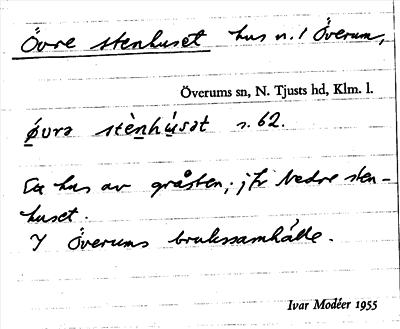 Övre stenhuset hus n. i Överum,
Överums sn, N. Tjusts hd, Klm. l.
ǿvrə stènhúsət s. 62.
Ett hus av gråsten; jfr Nedre sten-
huset.
I Överums brukssamhälle.
Ivar Modéer 1955